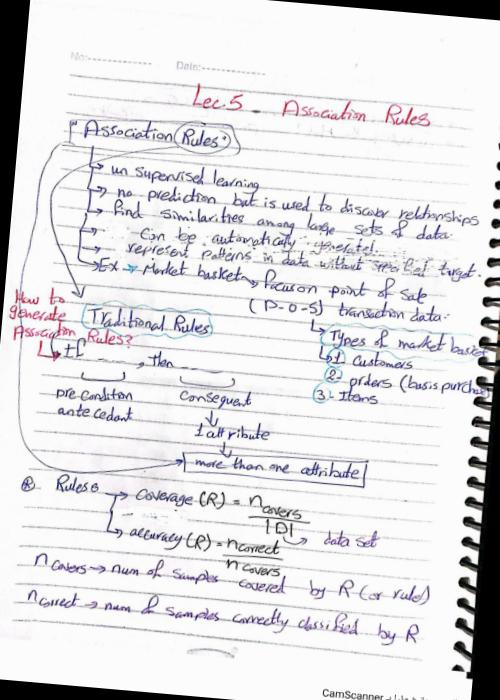 No:
Date:
Lec.5 - Association Rules
Association Rules:
un supervised learning
no prediction but is used to discover relationships
find similarities among large sets of data.
Can be automatically generated.
represent patterns in data without specified target.
Ex → Market basket → focus on point of sale
(P-O-S) transaction data.
How to generate Association Rules?
Traditional Rules
Types of market basket
1 Customers
If ____, then ____
2- orders (basis purchase
3- Items
pre condition
antecedant
Consequent
1 attribute
more than one attribute
Rules
coverage (R) = ncovers / |D| → data set
accuracy (R) = ncorrect / ncovers
ncovers → num of samples covered by R (or rule)
ncorrect → num of samples correctly classified by R
CamScanner